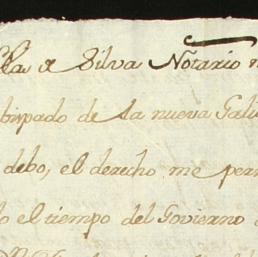 de Silva Notario
bispado de la nueva Gali
debo, el derecho me per
o el tiempo del Govierno